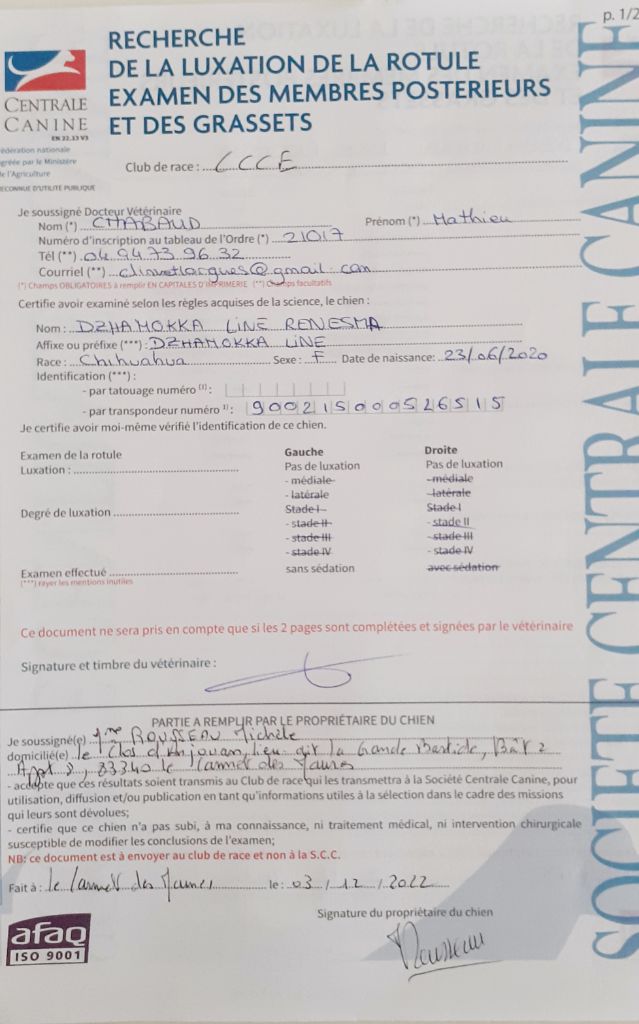 p. 1/2
RECHERCHE
DE LA LUXATION DE LA ROTULE
EXAMEN DES MEMBRES POSTERIEURS
ET DES GRASSETS
CENTRALE
CANINE
EN 22.33 V3
Fédération nationale
agréée par le Ministère
de l'Agriculture
RECONNUE D'UTILITÉ PUBLIQUE
Club de race : CCCE
Je soussigné Docteur Vétérinaire
Nom (*) CHABAUD Prénom (*) Mathieu
Numéro d'inscription au tableau de l'Ordre (*) 21017
Tél (**) 04 94 73 96 32
Courriel (**) clinvetlorgues@gmail.com
(*) Champs OBLIGATOIRES à remplir EN CAPITALES D'IMPRIMERIE (**) Champs facultatifs
Certifie avoir examiné selon les règles acquises de la science, le chien :
Nom : DZHAMOKKA LINE RENESMA
Affixe ou préfixe (***) : DZHAMOKKA LINE
Race : Chihuahua Sexe : F Date de naissance: 23/06/2020
Identification (***) :
- par tatouage numéro (1) :
- par transpondeur numéro 1) : 900215000526515
Je certifie avoir moi-même vérifié l'identification de ce chien.
Examen de la rotule Gauche Droite
Luxation : Pas de luxation Pas de luxation
- médiale - médiale
- latérale - latérale
Degré de luxation Stade I Stade I
- stade II - stade II
- stade III - stade III
- stade IV - stade IV
Examen effectué sans sédation avec sédation
(***) rayer les mentions inutiles
Ce document ne sera pris en compte que si les 2 pages sont complétées et signées par le vétérinaire
Signature et timbre du vétérinaire :
PARTIE A REMPLIR PAR LE PROPRIÉTAIRE DU CHIEN
Je soussigné(e) Mme ROUSSEAU Michèle
domicilié(e) le Clos d'Anjouan, lieu dit la Grande Bastide, Bât 2
Appt 8, 83340 le Cannet des Maures
- accepte que ces résultats soient transmis au Club de race qui les transmettra à la Société Centrale Canine, pour
utilisation, diffusion et/ou publication en tant qu'informations utiles à la sélection dans le cadre des missions
qui leurs sont dévolues;
- certifie que ce chien n'a pas subi, à ma connaissance, ni traitement médical, ni intervention chirurgicale
susceptible de modifier les conclusions de l'examen;
NB: ce document est à envoyer au club de race et non à la S.C.C.
Fait à : le Cannet des Maures le : 03/12/2022
Signature du propriétaire du chien
Rousseau
afaq
ISO 9001
SOCIETE CENTRALE CANINE